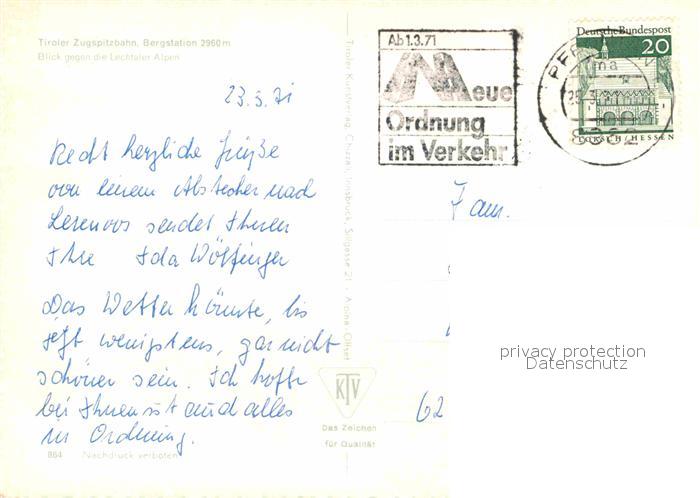 Tiroler Zugspitzbahn, Bergstation 2960m
Blick gegen die Lechtaler Alpen
23.3.71
Recht herzliche Grüße
von einem Abstecher nach
Lermoos sendet Ihnen
Ihre Ida Wölfinger
Das Wetter könnte, bis
jetzt wenigstens, gar nicht
schöner sein. Ich hoffe
bei Ihnen ist auch alles
in Ordnung.
864 Nachdruck verboten
Tiroler Kunstverlag Chizzali, Innsbruck, Sillgasse 21 - Alpina-Offset
KTV
Das Zeichen
für Qualität
Ab 1.3.71
Neue
Ordnung
im Verkehr
Deutsche Bundespost
20
LORSCH/HESSEN
Fam.
62
privacy protection
Datenschutz